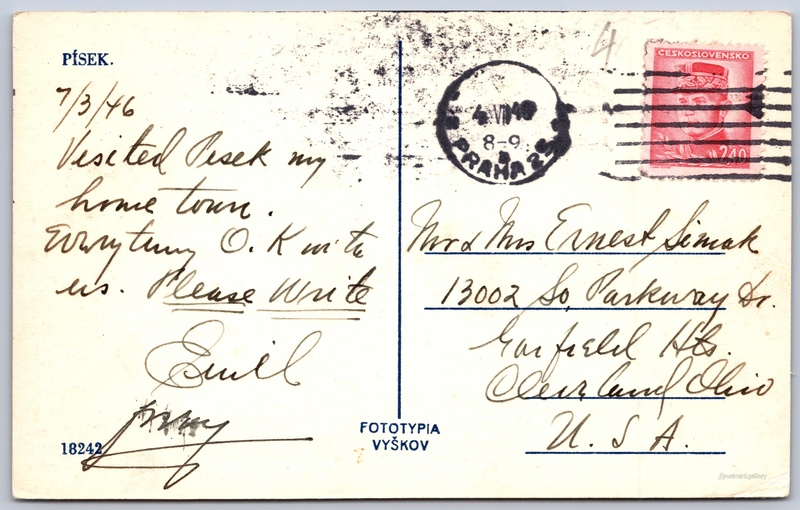 PÍSEK.
7/3/46
Visited Pisek my
home town.
Everyteing O.K with
us. Please Write
Emil
18242
FOTOTYPIA
VYŠKOV
4
8-9
PRAHA 25
ČESKOSLOVENSKO
2.40
Mr & Mrs Ernest Simak
13002 So. Parkway Dr.
Garfield Hts.
Cleveland Ohio
U. S. A.